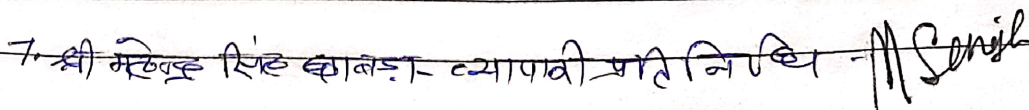 7. श्री महेन्द्र सिंह छाबड़ा - व्यापारी प्रतिनिधि - M Singh